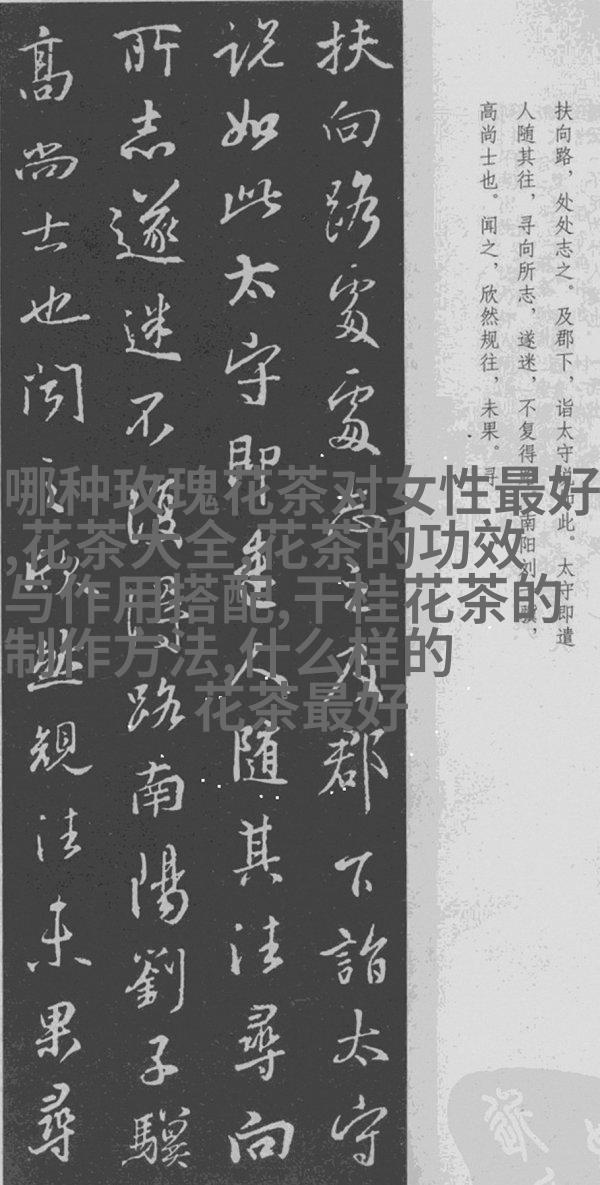 扶向路處處志之及郡下詣太守
说如此太守即遣人随其往尋向
所志遂迷不復得路南陽劉子驥
高尚士也闻之欣然規往未果尋
扶向路，处处志之。及郡下，诣太守说如此。太守即遣
人随其往，寻向所志，遂迷，不复得路。南阳刘子骥，
高尚士也。闻之，欣然规往，未果。寻
哪种玫瑰花茶对女性最好
,花茶大全,花茶的功效
与作用搭配,干桂花茶的
制作方法,什么样的
花茶最好